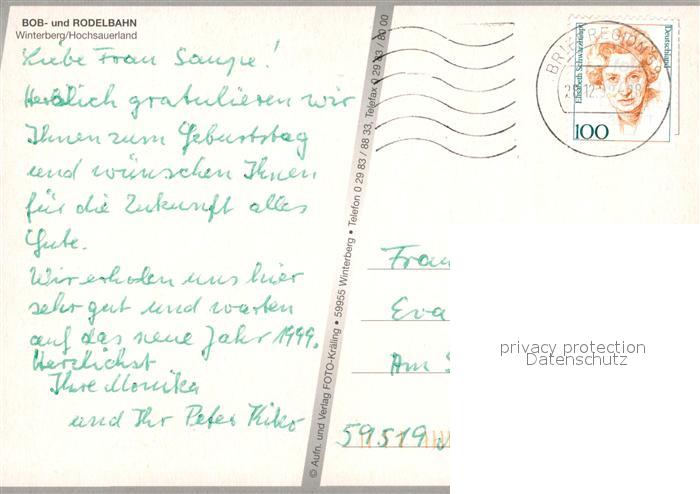 BOB- und RODELBAHN
Winterberg/Hochsauerland
Liebe Frau Saupe!
Herzlich gratulieren wir
Ihnen zum Geburtstag
und wünschen Ihnen
für die Zukunft alles
Gute.
Wir erholen uns hier
sehr gut und warten
auf das neue Jahr 1999.
Herzlichst
Ihre Monika
und Ihr Peter Kiko
© Aufn. und Verlag FOTO-Kräling • 59955 Winterberg • Telefon 0 29 83 / 88 33, Telefax 0 29 83 / 80 00
Elisabeth Schwarzhaupt
Deutschland
100
BRIEFREGION 59
Frau
Eva
Am
59519
privacy protection
Datenschutz